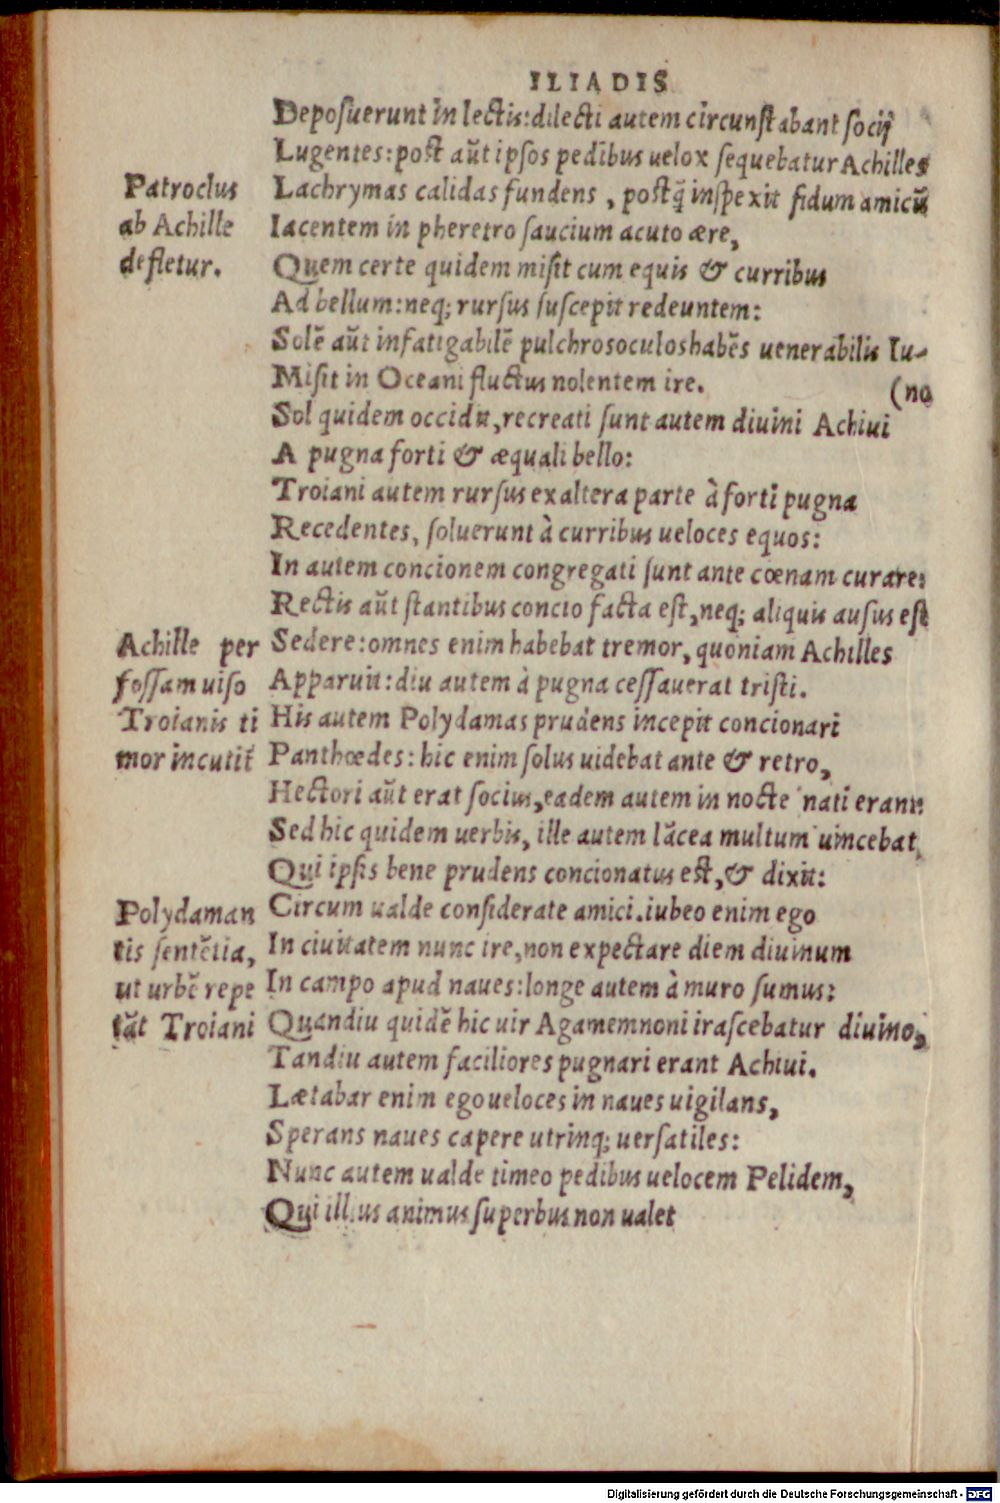 ILIADIS
Deposuerunt in lectis: dilecti autem circunstabant socij
Lugentes: post aūt ipsos pedibus uelox sequebatur Achilles
Lachrymas calidas fundens, postq̄ inspexit fidum amicū
Iacentem in pheretro saucium acuto ære,
Quem certe quidem misit cum equis & curribus
Ad bellum: neq; rursus suscepit redeuntem:
Solē aūt infatigabilē pulchros oculos habēs uenerabilis Iu-
(no
Misit in Oceani fluctus nolentem ire.
Sol quidem occidit, recreati sunt autem diuini Achiui
A pugna forti & æquali bello:
Troiani autem rursus ex altera parte à forti pugna
Recedentes, soluerunt à curribus ueloces equos:
In autem concionem congregati sunt ante cœnam curare:
Rectis aūt stantibus concio facta est, neq; aliquis ausus est
Sedere: omnes enim habebat tremor, quoniam Achilles
Apparuit: diu autem à pugna cessauerat tristi.
His autem Polydamas prudens incepit concionari
Panthœdes: hic enim solus uidebat ante & retro,
Hectori aūt erat socius, eadem autem in nocte nati erant:
Sed hic quidem uerbis, ille autem lācea multum uincebat,
Qui ipsis bene prudens concionatus est, & dixit:
Circum ualde considerate amici. iubeo enim ego
In ciuitatem nunc ire, non expectare diem diuinum
In campo apud naues: longe autem à muro sumus:
Quandiu quidē hic uir Agamemnoni irascebatur diuino,
Tandiu autem faciliores pugnari erant Achiui.
Lætabar enim ego ueloces in naues uigilans,
Sperans naues capere utrinq; uersatiles:
Nunc autem ualde timeo pedibus uelocem Pelidem,
Qui illius animus superbus non ualet
Patroclus
ab Achille
defletur.
Achille per
fossam uiso
Troianis ti
mor incutit̄
Polydaman
tis sentētia,
ut urbē repe
tāt Troiani
Digitalisierung gefördert durch die Deutsche Forschungsgemeinschaft - DFG